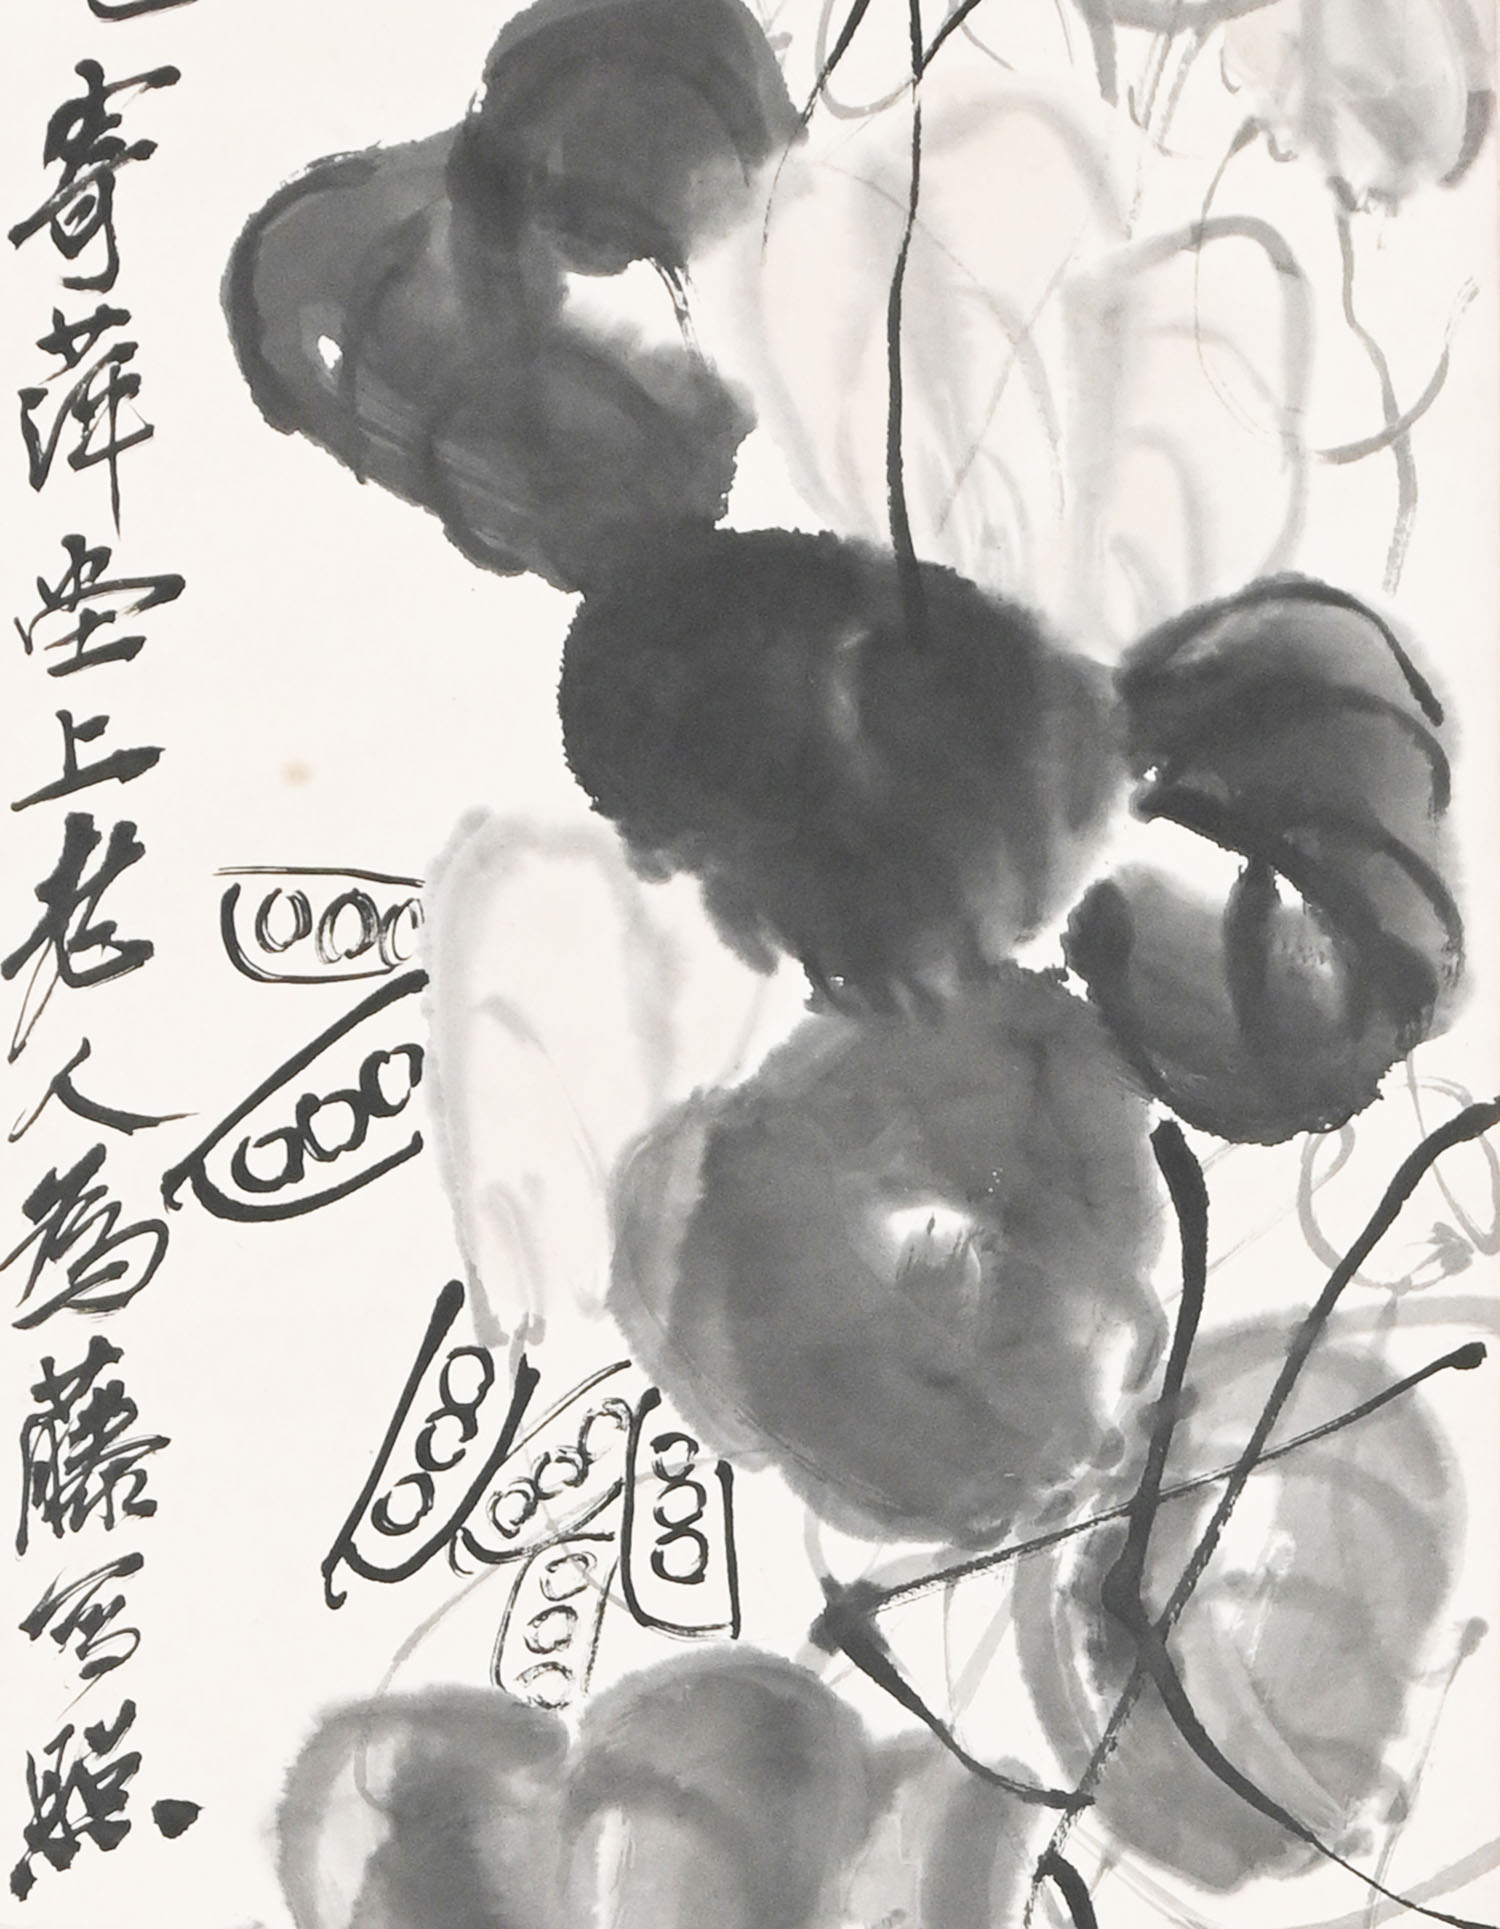 寄萍堂上老人為藤寫照